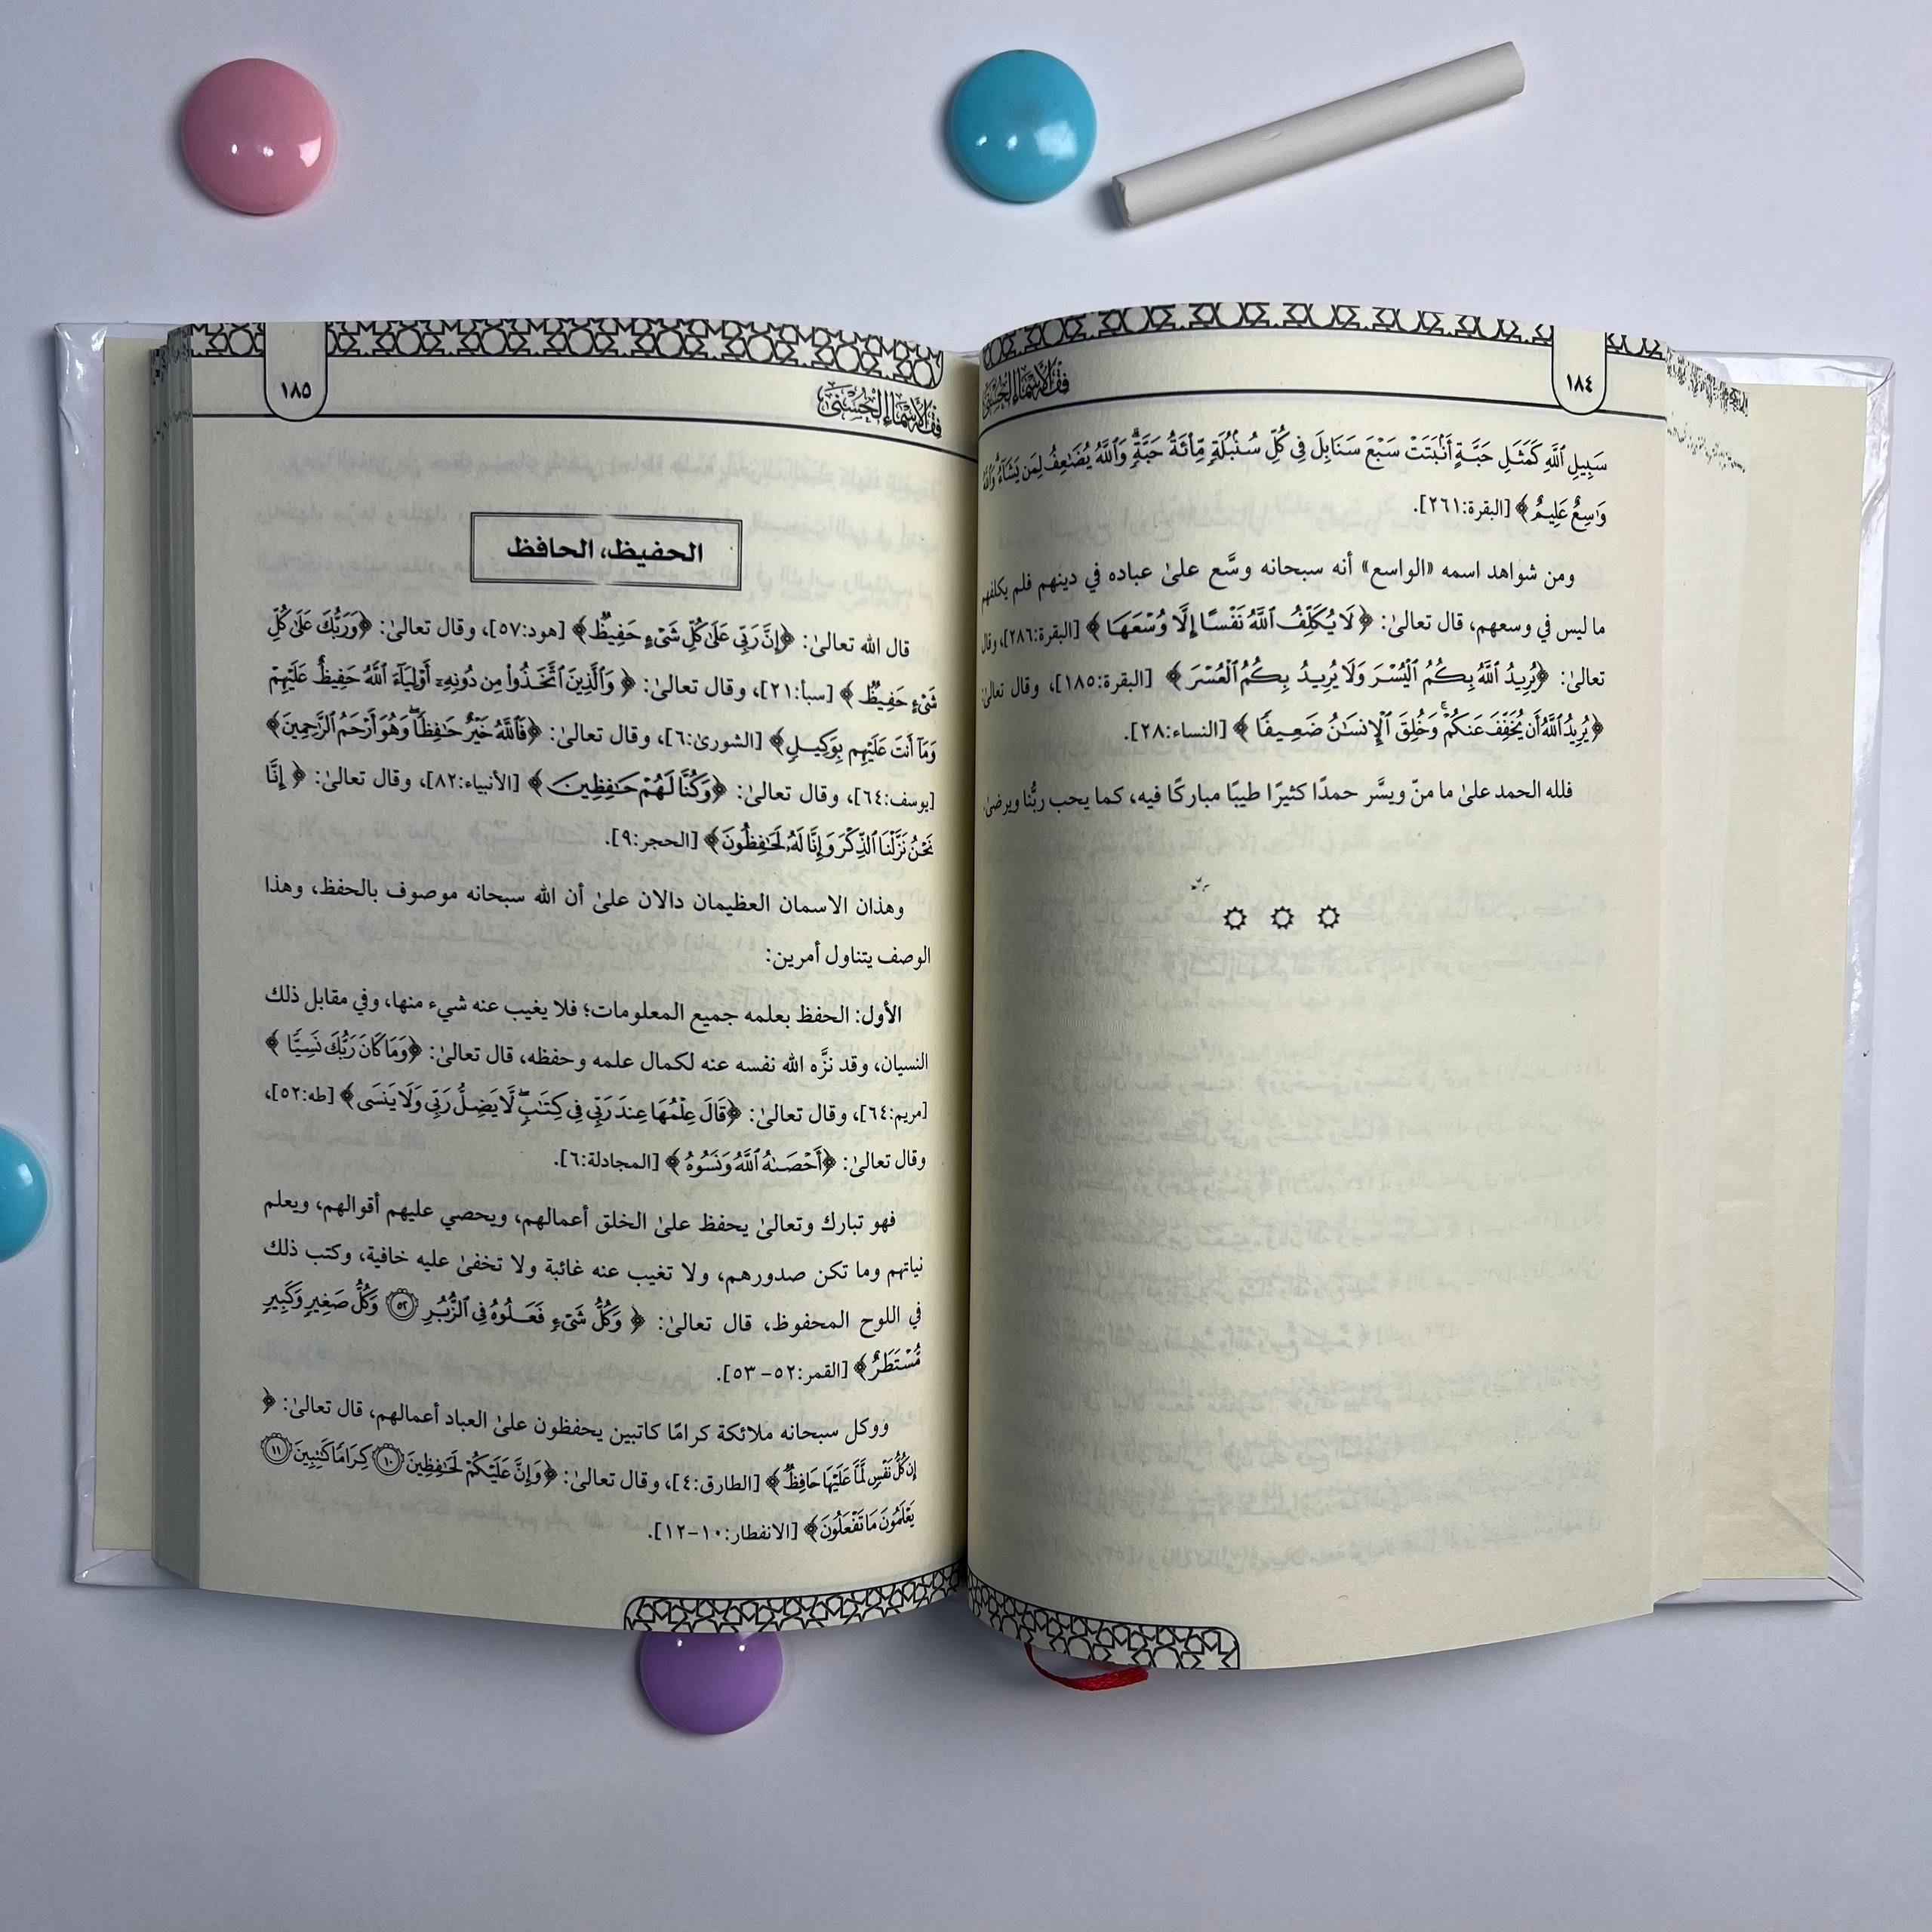 ١٨٤
فقه الأسماء الحسنى
سَبِيلِ ٱللَّهِ كَمَثَلِ حَبَّةٍ أَنۢبَتَتْ سَبْعَ سَنَابِلَ فِي كُلِّ سُنۢبُلَةٍ مِّاْئَةُ حَبَّةٍ ۗ وَٱللَّهُ يُضَٰعِفُ لِمَن يَشَآءُ ۗ وَٱللَّهُ
وَٰسِعٌ عَلِيمٌ ﴾ [البقرة:٢٦١].
ومن شواهد اسمه «الواسع» أنه سبحانه وسَّع علىٰ عباده في دينهم فلم يكلفهم
ما ليس في وسعهم، قال تعالىٰ: ﴿ لَا يُكَلِّفُ ٱللَّهُ نَفْسًا إِلَّا وُسْعَهَا ﴾ [البقرة:٢٨٦]، وقال
تعالىٰ: ﴿ يُرِيدُ ٱللَّهُ بِكُمُ ٱلْيُسْرَ وَلَا يُرِيدُ بِكُمُ ٱلْعُسْرَ ﴾ [البقرة:١٨٥]، وقال تعالىٰ:
﴿ يُرِيدُ ٱللَّهُ أَن يُخَفِّفَ عَنكُمْ ۚ وَخُلِقَ ٱلْإِنسَٰنُ ضَعِيفًا ﴾ [النساء:٢٨].
فلله الحمد علىٰ ما منّ ويسَّر حمدًا كثيرًا طيبًا مباركًا فيه، كما يحب ربُّنا ويرضىٰ.
فقه الأسماء الحسنى
١٨٥
الحفيظ، الحافظ
قال الله تعالىٰ: ﴿إِنَّ رَبِّي عَلَىٰ كُلِّ شَىْءٍ حَفِيظٌ﴾ [هود:٥٧]، وقال تعالىٰ: ﴿وَرَبُّكَ عَلَىٰ كُلِّ
شَىْءٍ حَفِيظٌ ﴾ [سبأ:٢١]، وقال تعالىٰ: ﴿ وَٱلَّذِينَ ٱتَّخَذُوا۟ مِن دُونِهِۦٓ أَوْلِيَآءَ ٱللَّهُ حَفِيظٌ عَلَيْهِمْ
وَمَآ أَنتَ عَلَيْهِم بِوَكِيلٍ﴾ [الشورىٰ:٦]، وقال تعالىٰ: ﴿فَٱللَّهُ خَيْرٌ حَٰفِظًا ۖ وَهُوَ أَرْحَمُ ٱلرَّٰحِمِينَ﴾
[يوسف:٦٤]، وقال تعالىٰ: ﴿وَكُنَّا لَهُمْ حَٰفِظِينَ ﴾ [الأنبياء:٨٢]، وقال تعالىٰ: ﴿ إِنَّا
نَحْنُ نَزَّلْنَا ٱلذِّكْرَ وَإِنَّا لَهُۥ لَحَٰفِظُونَ﴾ [الحجر:٩].
وهذان الاسمان العظيمان دالان علىٰ أن الله سبحانه موصوف بالحفظ، وهذا
الوصف يتناول أمرين:
الأول: الحفظ بعلمه جميع المعلومات؛ فلا يغيب عنه شيء منها، وفي مقابل ذلك
النسيان، وقد نزَّه الله نفسه عنه لكمال علمه وحفظه، قال تعالىٰ: ﴿وَمَا كَانَ رَبُّكَ نَسِيًّا ﴾
[مريم:٦٤]، وقال تعالىٰ: ﴿قَالَ عِلْمُهَا عِندَ رَبِّي فِي كِتَٰبٍ ۖ لَّا يَضِلُّ رَبِّي وَلَا يَنسَى ﴾ [طه:٥٢]،
وقال تعالىٰ: ﴿أَحْصَىٰهُ ٱللَّهُ وَنَسُوهُ ﴾ [المجادلة:٦].
فهو تبارك وتعالىٰ يحفظ علىٰ الخلق أعمالهم، ويحصي عليهم أقوالهم، ويعلم
نياتهم وما تكن صدورهم، ولا تغيب عنه غائبة ولا تخفىٰ عليه خافية، وكتب ذلك
في اللوح المحفوظ، قال تعالىٰ: ﴿ وَكُلُّ شَىْءٍ فَعَلُوهُ فِي ٱلزُّبُرِ ٥٢ وَكُلُّ صَغِيرٍ وَكَبِيرٍ
مُّسْتَطَرٌ ﴾ [القمر:٥٢- ٥٣].
ووكل سبحانه ملائكة كرامًا كاتبين يحفظون علىٰ العباد أعمالهم، قال تعالىٰ: ﴿
إِن كُلُّ نَفْسٍ لَّمَّا عَلَيْهَا حَافِظٌ﴾ [الطارق:٤]، وقال تعالىٰ: ﴿وَإِنَّ عَلَيْكُمْ لَحَٰفِظِينَ ١٠ كِرَامًا كَٰتِبِينَ ١١
يَعْلَمُونَ مَا تَفْعَلُونَ﴾ [الانفطار:١٠-١٢].